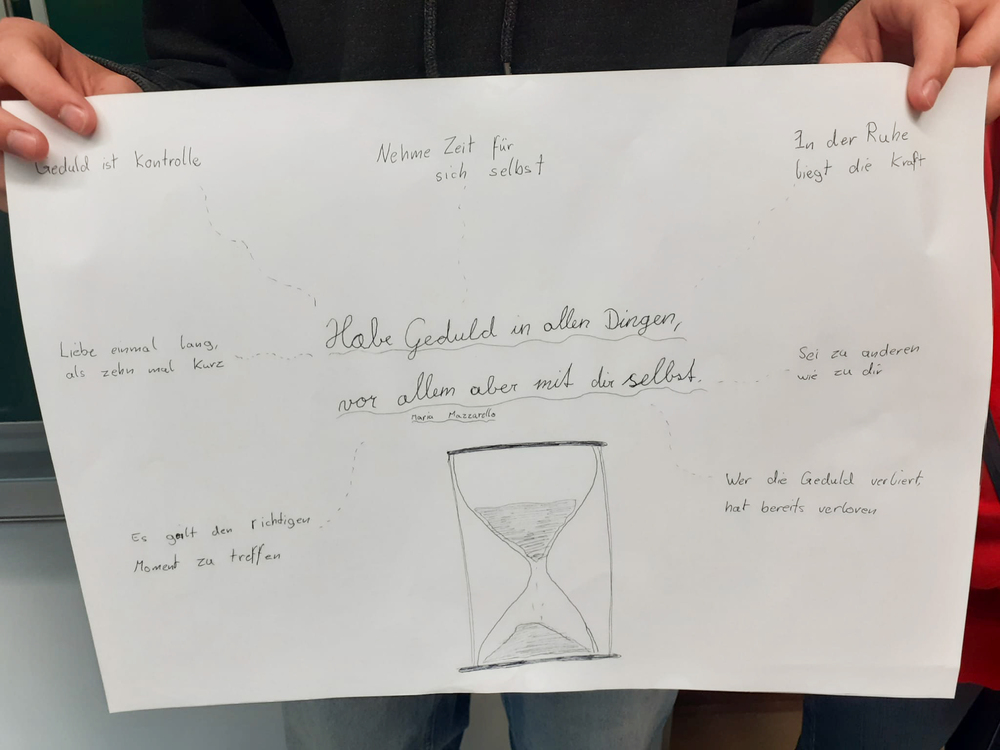 Geduld ist Kontrolle
Nehme Zeit für
sich selbst
In der Ruhe
liegt die Kraft
Habe Geduld in allen Dingen,
vor allem aber mit dir selbst.
Maria Mazzarello
Liebe einmal lang,
als zehn mal kurz
Sei zu anderen
wie zu dir
Es gilt den richtigen
Moment zu treffen
Wer die Geduld verliert,
hat bereits verloren